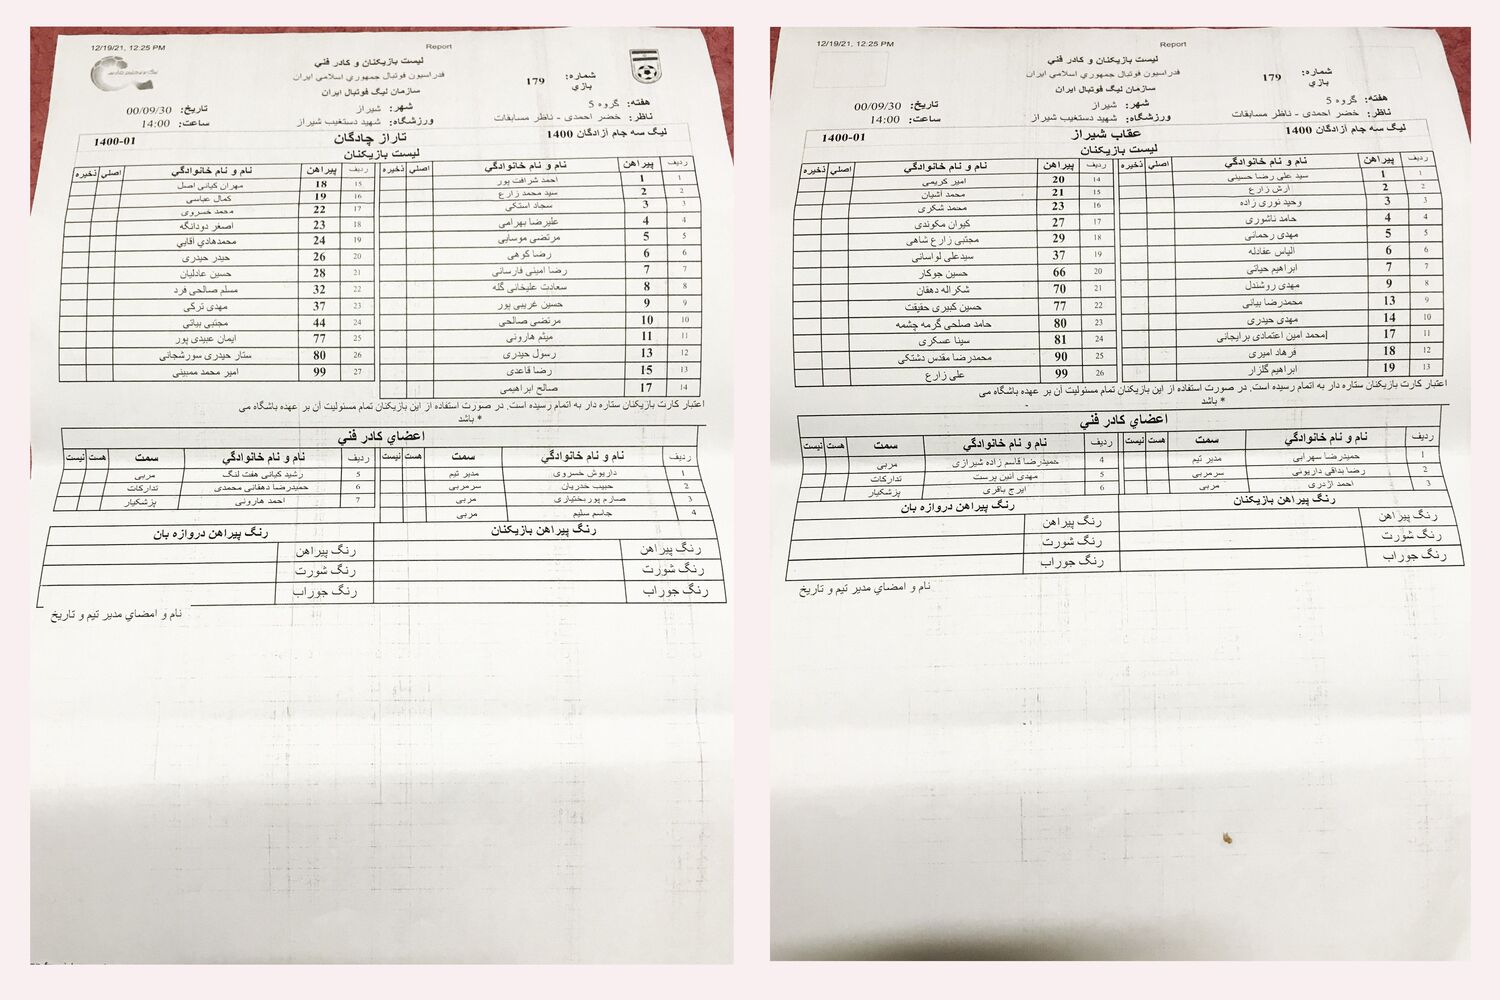 12/19/21, 12:25 PM Report
لیست بازیکنان و کادر فني
فدراسیون فوتبال جمهوري اسلامي ایران
سازمان لیگ فوتبال ایران
شماره بازي: 179
هفته: گروه 5 شهر: شیراز تاریخ: 00/09/30
ناظر: خضر احمدی - ناظر مسابقات ورزشگاه: شهید دستغیب شیراز ساعت: 14:00
لیگ سه جام آزادگان 1400 تاراز چادگان 1400-01
لیست بازیکنان
ردیف پیراهن نام و نام خانوادگي اصلي ذخیره ردیف پیراهن نام و نام خانوادگي اصلي ذخیره
1 1 احمد شرافت پور 15 18 مهران کیانی اصل
2 2 سید محمد زارع 16 19 کمال عباسی
3 3 سجاد استکی 17 22 محمد خسروی
4 4 علیرضا بهرامی 18 23 اصغر دودانگه
5 5 مرتضی موسایی 19 24 محمدهادي اقايي
6 6 رضا کوهی 20 26 حیدر حیدری
7 7 رضا امینی فارسانی 21 28 حسین عادلیان
8 8 سعادت علیخانی گله 22 32 مسلم صالحی فرد
9 9 حسین غریبی پور 23 37 مهدی ترکی
10 10 مرتضی صالحی 24 44 مجتبی بیاتی
11 11 میثم هارونی 25 77 ایمان عبیدی پور
12 13 رسول حیدری 26 80 ستار حیدری سورشجانی
13 15 رضا قاعدی 27 99 امیر محمد ممبینی
14 17 صالح ابراهیمی
اعتبار کارت بازیکنان ستاره دار به اتمام رسیده است. در صورت استفاده از این بازیکنان تمام مسئولیت آن بر عهده باشگاه می
* باشد
اعضاي کادر فني
ردیف نام و نام خانوادگي سمت هست نیست ردیف نام و نام خانوادگي سمت هست نیست
1 داریوش خسروی مدیر تیم 5 رشید کیانی هفت لنگ مربی
2 حبیب خدریان سرمربی 6 حمیدرضا دهقانی محمدی تدارکات
3 صارم پوربختیاری مربی 7 احمد هارونی پزشکیار
4 جاسم سلیم مربی
رنگ پیراهن بازیکنان رنگ پیراهن دروازه بان
رنگ پیراهن رنگ پیراهن
رنگ شورت رنگ شورت
رنگ جوراب رنگ جوراب
نام و امضاي مدیر تیم و تاریخ
12/19/21, 12:25 PM Report
لیست بازیکنان و کادر فني
فدراسیون فوتبال جمهوري اسلامي ایران
سازمان لیگ فوتبال ایران
شماره بازي: 179
هفته: گروه 5 شهر: شیراز تاریخ: 00/09/30
ناظر: خضر احمدی - ناظر مسابقات ورزشگاه: شهید دستغیب شیراز ساعت: 14:00
لیگ سه جام آزادگان 1400 عقاب شیراز 1400-01
لیست بازیکنان
ردیف پیراهن نام و نام خانوادگي اصلي ذخیره ردیف پیراهن نام و نام خانوادگي اصلي ذخیره
1 1 سید علی رضا حسینی 14 20 امیر کریمی
2 2 ارش زارع 15 21 محمد آشیان
3 3 وحید نوری زاده 16 23 محمد شکری
4 4 حامد ناشوری 17 27 کیوان مکوندی
5 5 مهدی رحمانی 18 29 مجتبی زارع شاهی
6 6 الیاس عفادله 19 37 سیدعلی لواسانی
7 7 ابراهیم حیاتی 20 66 حسین جوکار
8 9 مهدی روشندل 21 70 شکراله دهقان
9 13 محمدرضا بیانی 22 77 حسین کبیری حقیقت
10 14 مهدی حیدری 23 80 حامد صلحی گرمه چشمه
11 17 محمد امین اعتمادی برایجانی 24 81 سینا عسکری
12 18 فرهاد امیری 25 90 محمدرضا مقدس دشتکی
13 19 ابراهیم گلزار 26 99 علی زارع
اعتبار کارت بازیکنان ستاره دار به اتمام رسیده است. در صورت استفاده از این بازیکنان تمام مسئولیت آن بر عهده باشگاه می
* باشد
اعضاي کادر فني
ردیف نام و نام خانوادگي سمت هست نیست ردیف نام و نام خانوادگي سمت هست نیست
1 حمیدرضا سهرابی مدیر تیم 4 حمیدرضا قاسم زاده شیرازی مربی
2 رضا بداقی داریونی سرمربی 5 مهدی آئین پرست تدارکات
3 احمد اژدری مربی 6 ایرج باقری پزشکیار
رنگ پیراهن بازیکنان رنگ پیراهن دروازه بان
رنگ پیراهن رنگ پیراهن
رنگ شورت رنگ شورت
رنگ جوراب رنگ جوراب
نام و امضاي مدیر تیم و تاریخ